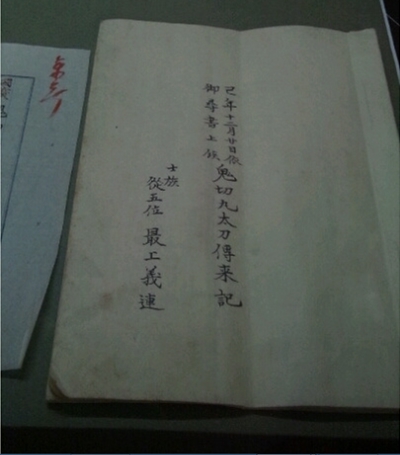 巳年十二月廿日依
御尋書上候
鬼切丸太刀傳来記
士族
從五位 最上義連